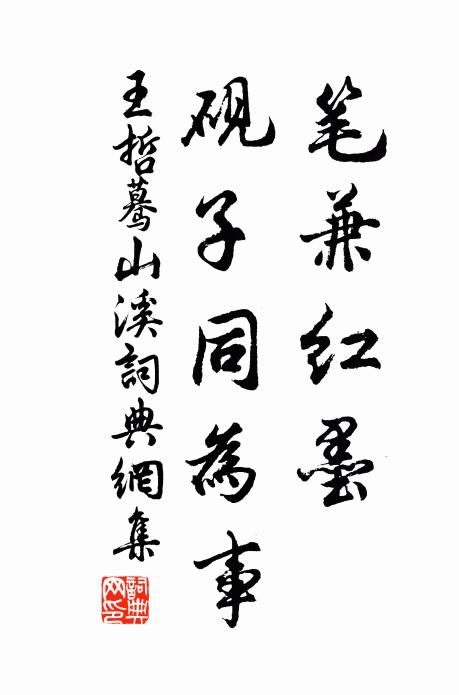 笔兼红墨
砚子同為事
王哲蓦山溪詞典網集
詞典网印